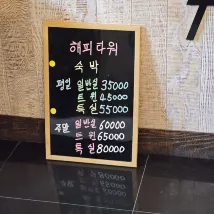 해피타워
숙박
평일 일반실 35000
트윈 45000
특실 55000
주말 일반실 60000
트윈 65000
특실 80000